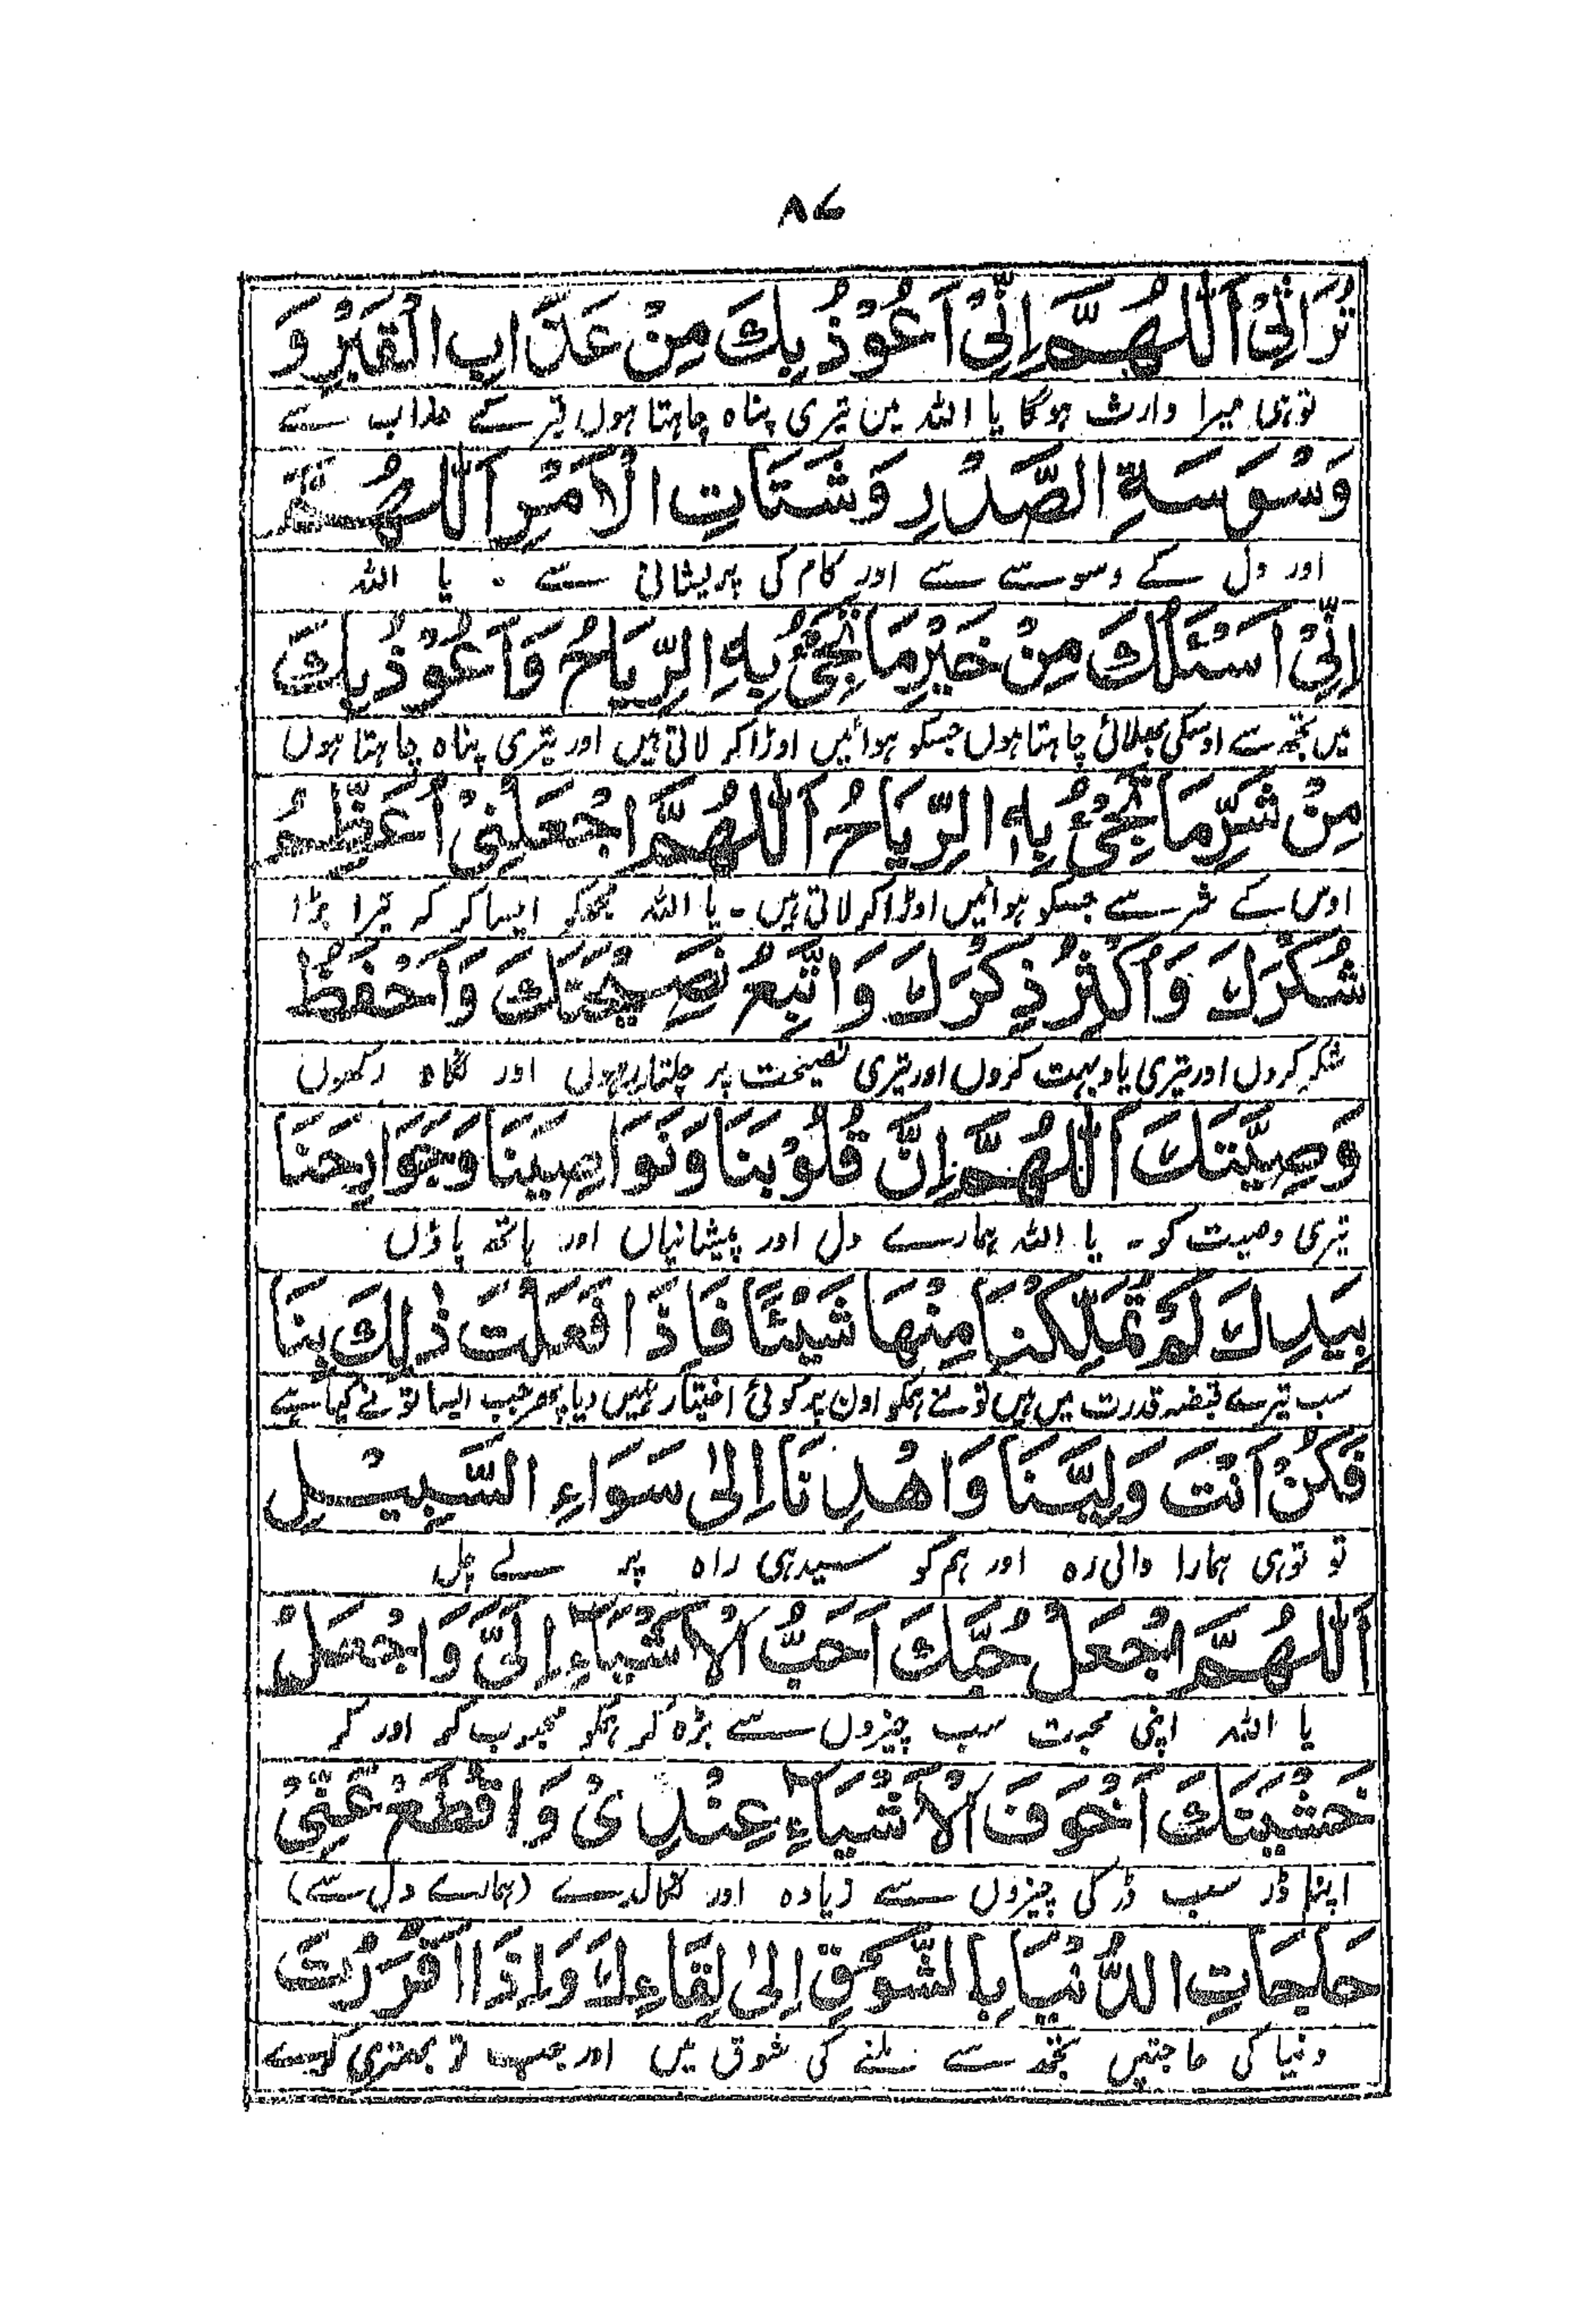 ۸۷
تُرَاثِیْ اَللّٰهُمَّ اِنِّیْ اَعُوْذُ بِكَ مِنْ عَذَابِ الْقَبْرِ وَ
توہی میرا وارث ہوگا یا اللہ مین تیری پناہ چاہتا ہوں قبر کے عذاب سے
وَسْوَسَةِ الصَّدْرِ وَشَتَاتِ الْاَمْرِ اَللّٰهُمَّ
اور دل کے وسوسے سے اور کام کی پریشانی سے ۔ یا اللہ
اِنِّیْ اَسْئَلُكَ مِنْ خَیْرِ مَا تَجِیْٓءُ بِهِ الرِّیَاحُ وَاَعُوْذُ بِكَ
میں تجھ سے اوسکی بھلائی چاہتا ہوں جسکو ہوائیں اوڑا کر لاتی ہیں اور تیری پناہ چاہتا ہوں
مِنْ شَرِّ مَا تَجِیْٓءُ بِهِ الرِّیَاحُ اَللّٰهُمَّ اجْعَلْنِیْ اُعَظِّمُ
اوس کے شر سے جسکو ہوائیں اوڑا کر لاتی ہیں ۔ یا اللہ مجھکو ایسا کر کہ تیرا بڑا
شُكْرَكَ وَاُكْثِرُ ذِكْرَكَ وَاتَّبِعُ نَصِیْحَتَكَ وَاَحْفَظُ
شکر کروں اور تیری یاد بہت کروں اور تیری نصیحت پر چلتا رہوں اور نگاہ رکھوں
وَصِیَّتَكَ اَللّٰهُمَّ اِنَّ قُلُوْبَنَا وَنَوَاصِیَنَا وَجَوَارِحَنَا
تیری وصیت کو ۔ یا اللہ ہمارے دل اور پیشانیاں اور ہاتھ پاؤں
بِیَدِكَ لَمْ تُمَلِّكْنَا مِنْهَا شَیْئًا فَاِذَا فَعَلْتَ ذٰلِكَ بِنَا
سب تیرے قبضہ قدرت میں ہیں تو نے ہمکو اون پر کوئی اختیار نہیں دیا پھر جب ایسا تو نے کیا ہے
فَكُنْ اَنْتَ وَلِیَّنَا وَاهْدِنَا اِلٰی سَوَاءِ السَّبِیْلِ
تو توہی ہمارا والی رہ اور ہم کو سیدھی راہ پر لے چل
اَللّٰهُمَّ اجْعَلْ حُبَّكَ اَحَبَّ الْاَشْیَآءِ اِلَیَّ وَاجْعَلْ
یا اللہ اپنی محبت سب چیزوں سے بڑہ کر ہمکو محبوب کر اور کر
خَشْیَتَكَ اَخْوَفَ الْاَشْیَآءِ عِنْدِیْ وَاقْطَعْ عَنِّیْ
اپنا ڈر سب ڈر کی چیزوں سے زیادہ اور نکالدے (ہمارے دل سے)
حَاجَاتِ الدُّنْیَا بِالشَّوْقِ اِلٰی لِقَاءِكَ وَاِذَا اَقْرَرْتَ
دنیا کی حاجتیں تجھ سے ملنے کی شوق میں اور جب تو